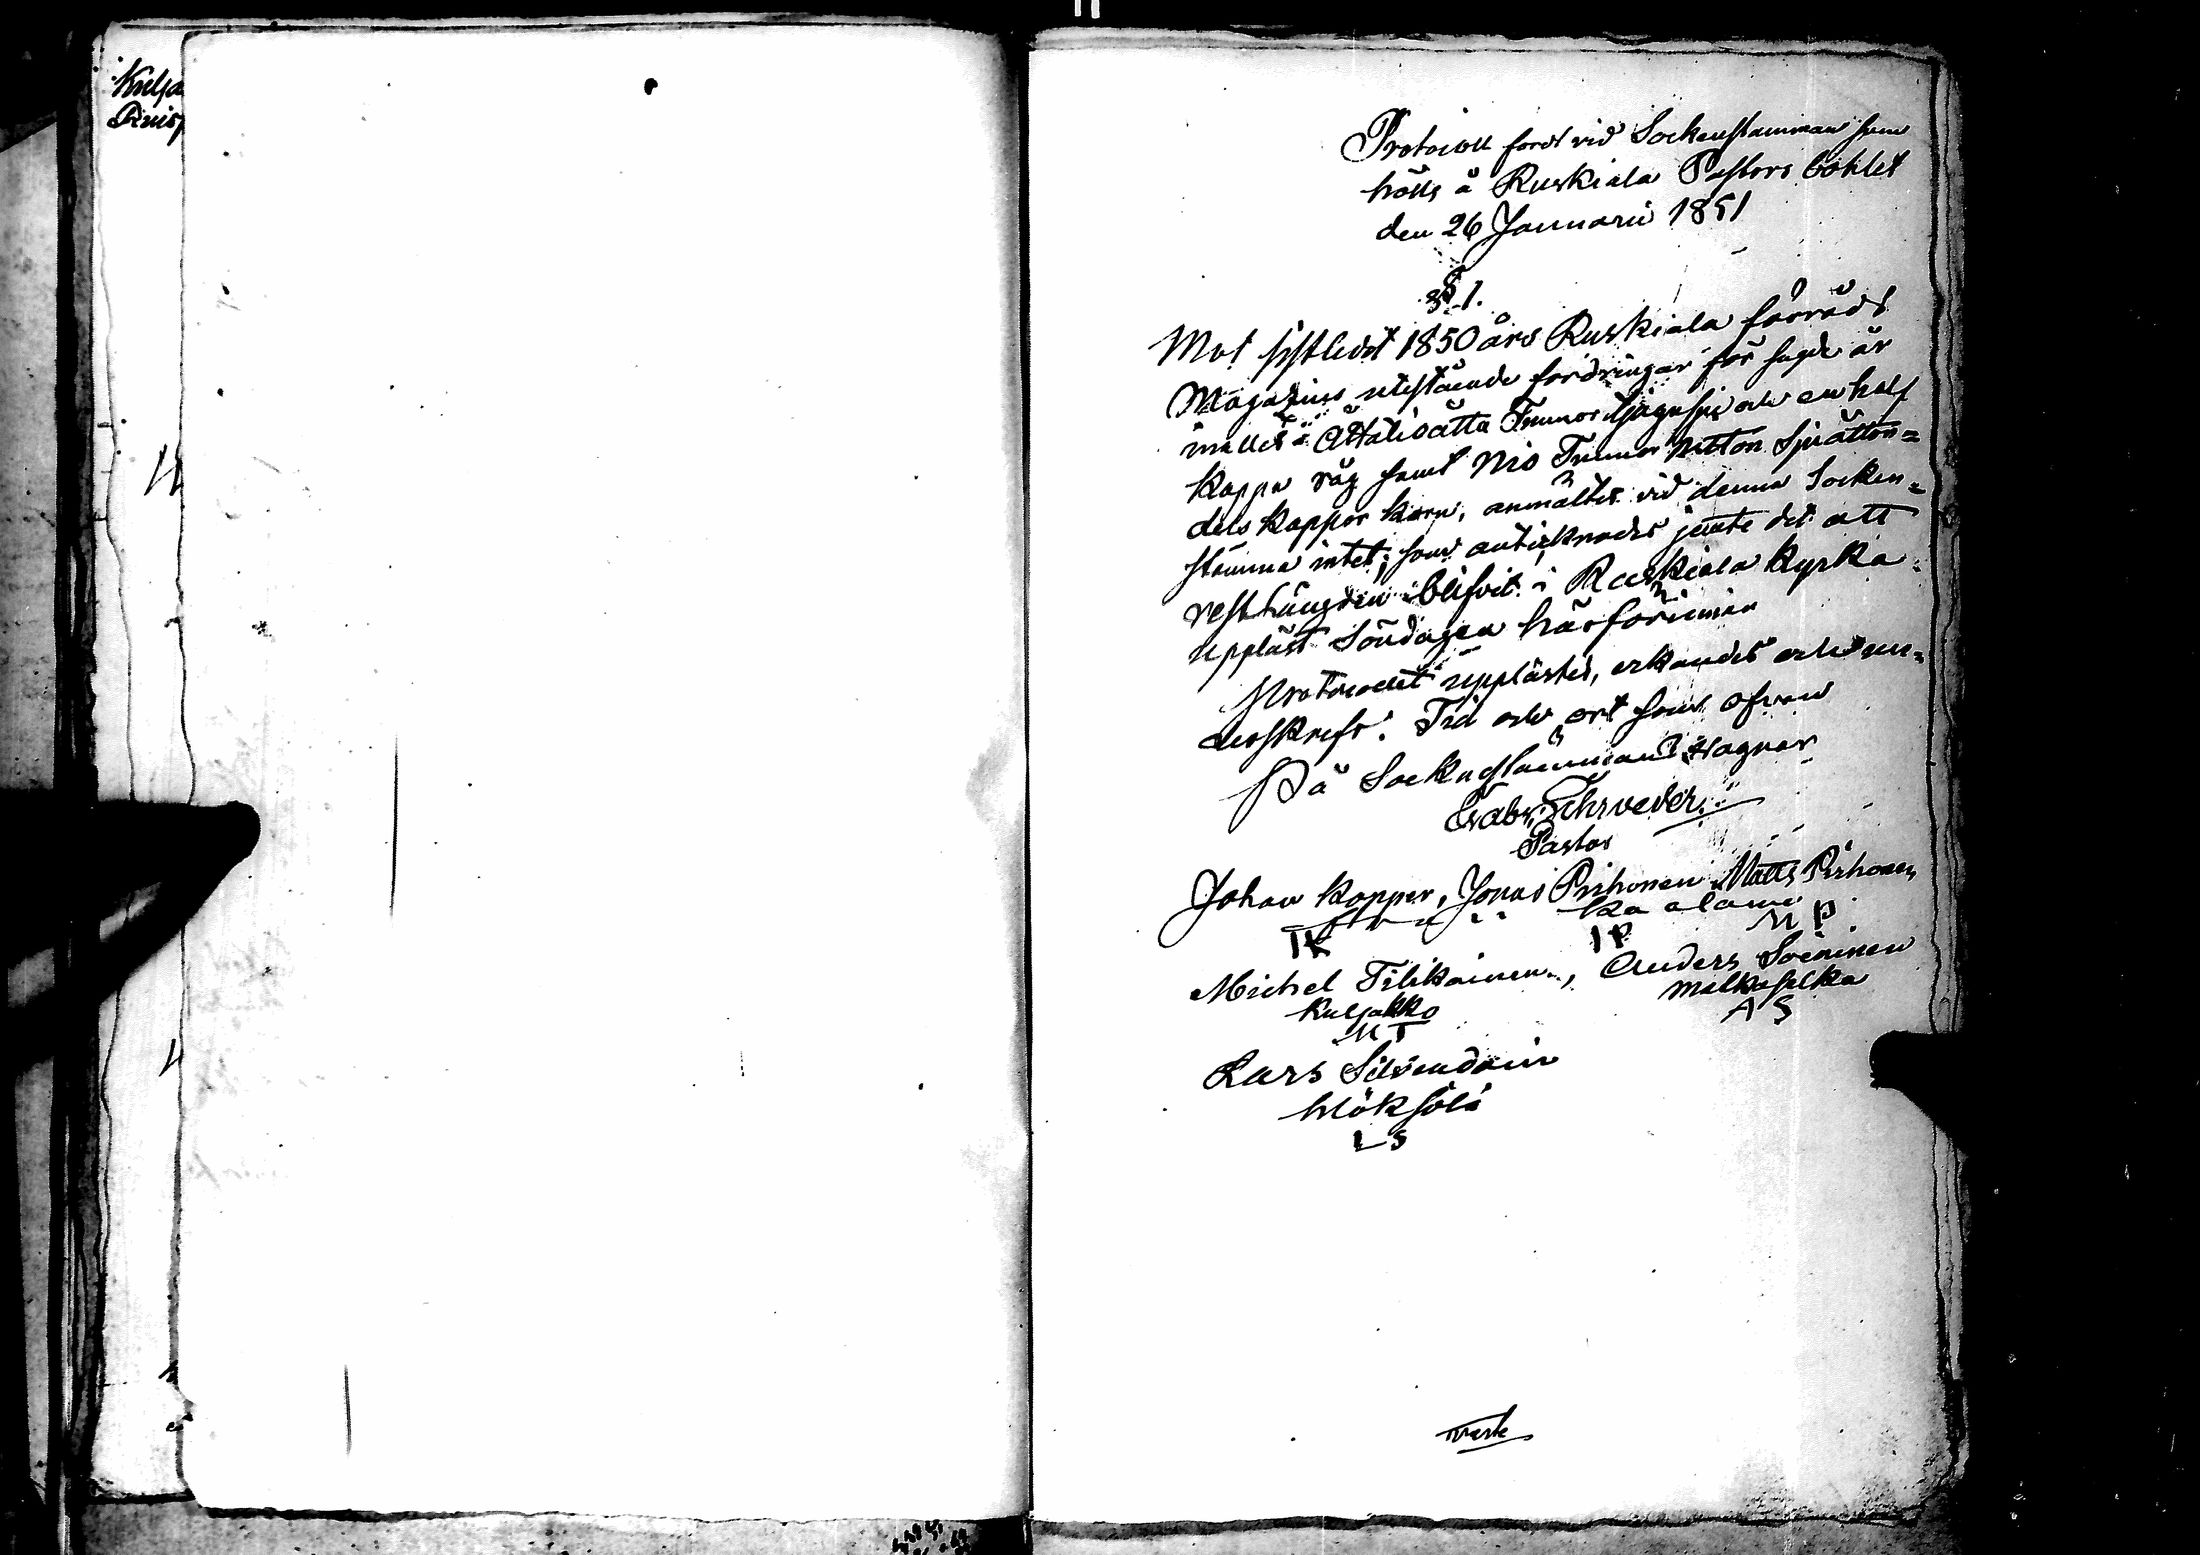 Kulja
Protocoll fördt vid Sockenstämman som
hölls å Ruskiala Pastors bohlet
den 26 Januarii 1851
§ 1.
Mot sistledit 1850 års Ruskiala förråds
Magazins utestående fordringar för sagde år
Åttatioåtta Tunnor tjugusju och en half
Kappa råg samt Nio Tunnor nitton Sjuåtton=
dels Kappor korn, anmältes vid denna Socken=
stämma intet; som antecknades jemte det att
restlängden blifvit i Ruskiala Kyrka
uppläst Söndagen härförinnan
Protocollet upplästes, erkändes och un=
derskrefs. Tid och ort som ofvan
På Sockenstämmans vägnar
Gabr. Schroeder
Pastor
Johan Kopper, Jonas Pirhonen Matts Pirhonen
IK IP MP
Michel Tilikainen, Anders Soininen
Kuljakko
MT AS
Lars
LS